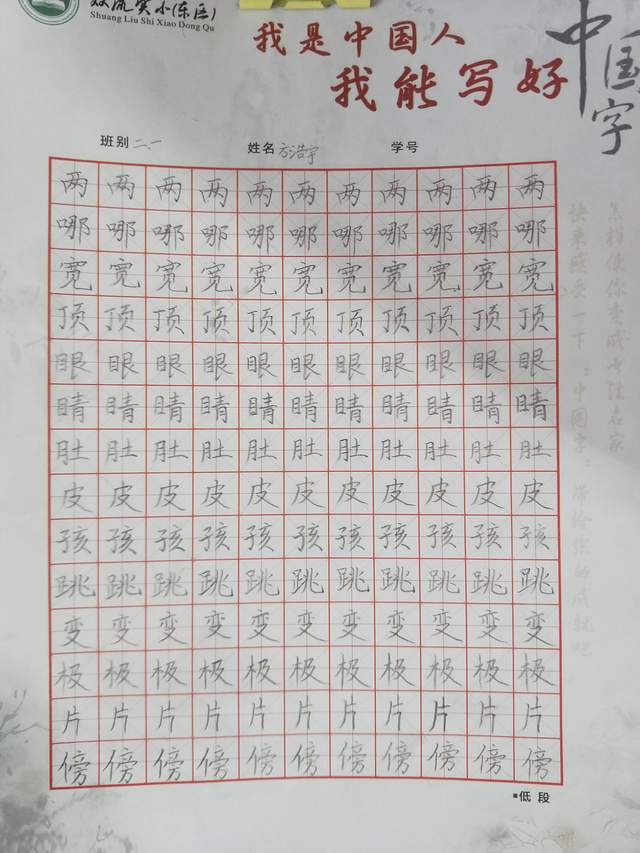 双流实小(东区)
Shuang Liu Shi Xiao Dong Qu
我是中国人
我能写好
中国字
班别 二.一 姓名 方浩宇 学号
两两两两两两两两两两两
哪哪哪哪哪哪哪哪哪哪哪
宽宽宽宽宽宽宽宽宽宽宽
顶顶顶顶顶顶顶顶顶顶顶
眼眼眼眼眼眼眼眼眼眼眼
睛睛睛睛睛睛睛睛睛睛睛
肚肚肚肚肚肚肚肚肚肚肚
皮皮皮皮皮皮皮皮皮皮皮
孩孩孩孩孩孩孩孩孩孩孩
跳跳跳跳跳跳跳跳跳跳跳
变变变变变变变变变变变
极极极极极极极极极极极
片片片片片片片片片片片
傍傍傍傍傍傍傍傍傍傍傍
低段